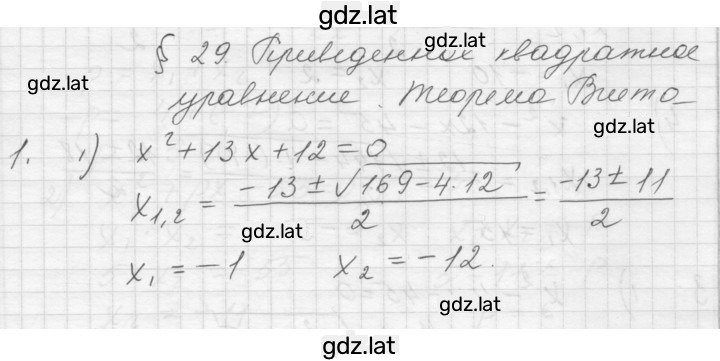 gdz.lat
§ 29. Приведенное квадратное
gdz.lat
gdz.lat
уравнение. Теорема Виета
gdz.lat
1. 1) x² + 13x + 12 = 0
x₁,₂ = (-13 ± √(169 - 4·12)) / 2 = (-13 ± 11) / 2
gdz.lat
x₁ = -1 x₂ = -12.
gdz.lat
gdz.lat